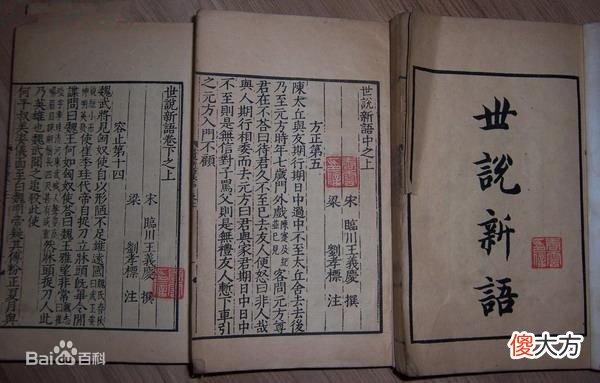 世說新語
世說新語中之上
方正第五
宋 臨川王義慶 撰
梁 劉孝標 注
陳太丘與友期行期日中過中不至太丘舍去去後
乃至元方時年七歲門外戲陳寔及紀並已見客問元方尊
君在不荅曰待君久不至已去友人便怒曰非人哉
與人期行相委而去元方曰君與家君期日中日中
不至則是無信對子罵父則是無禮友人慙下車引
之元方入門不顧
世說新語卷下之上
容止第十四
宋 臨川王義慶 撰
梁 劉孝標 注
魏武將見匈奴使自以形陋不足雄遠國魏氏春秋曰武王姿
貌短小而神明英發使崔季珪代帝自捉刀立牀頭既畢令間
諜問曰魏王何如匈奴使荅曰魏王雅望非常
然牀頭捉刀人此
乃英雄也魏武聞之追殺此使
何平叔美姿儀面至白魏明帝疑其傅粉正夏月與
Bai度百科
傻大方